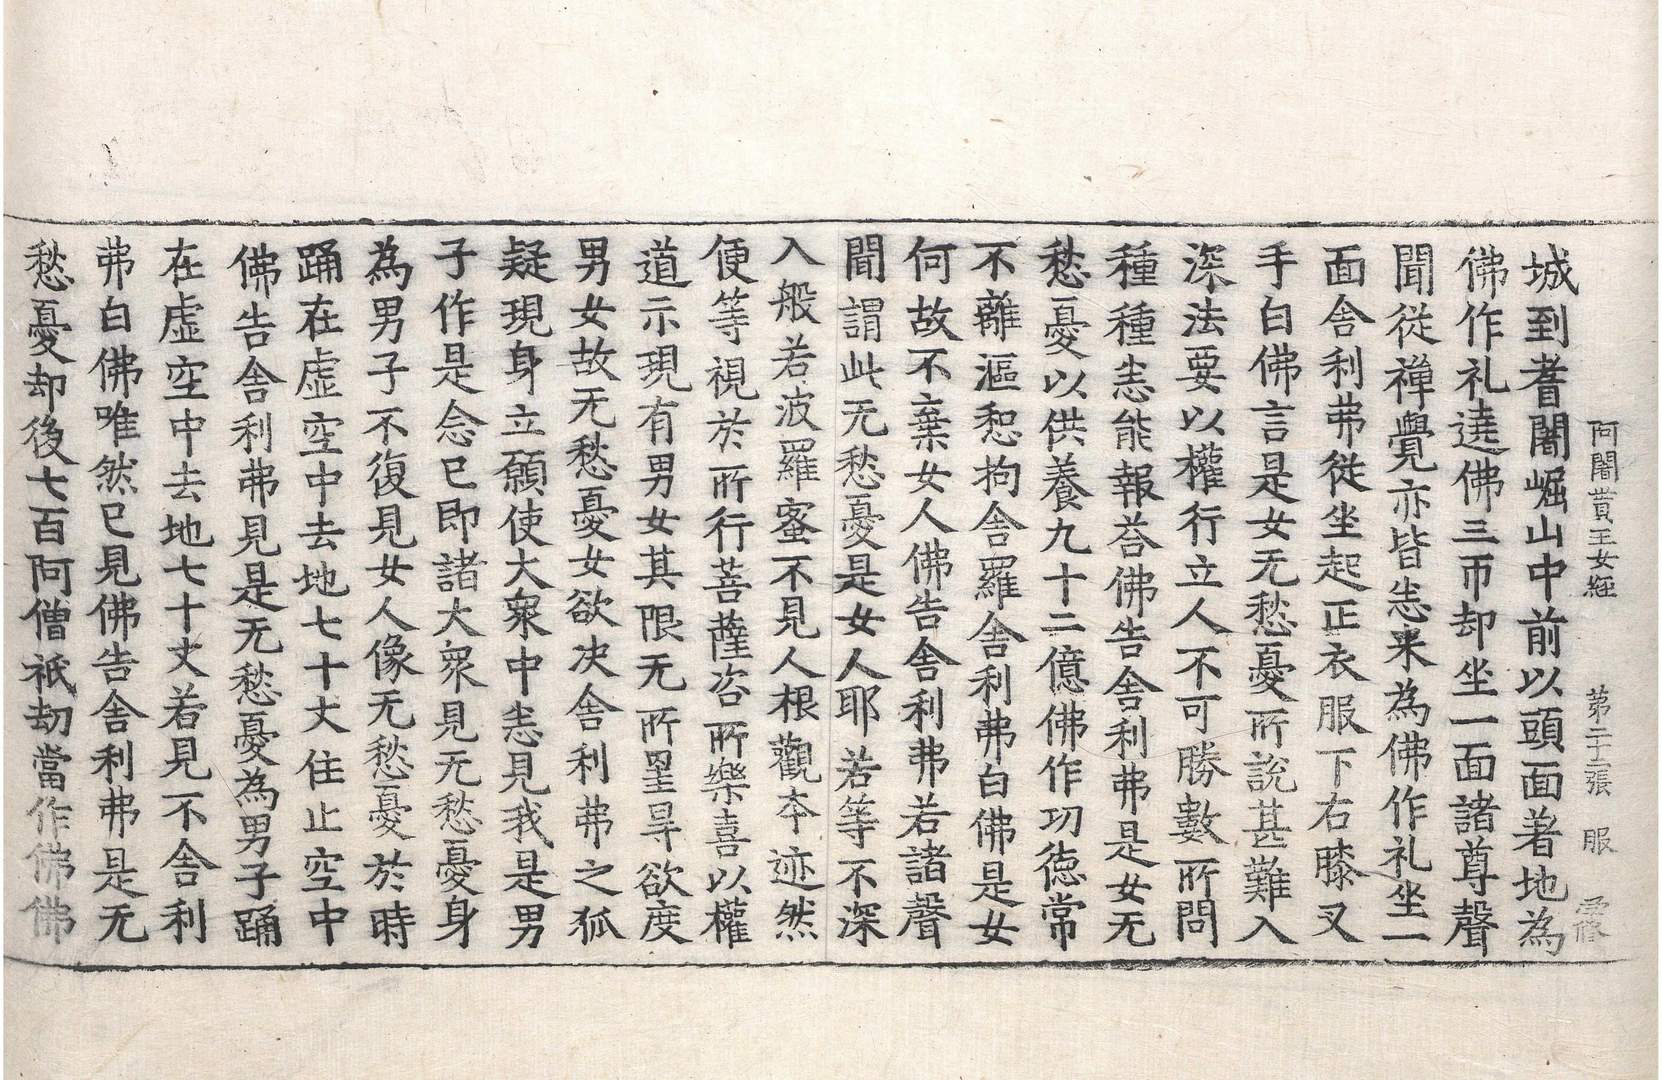 阿闍貰王女經 第二十二張 服
城到耆闍崛山中前以頭面著地為
佛作礼遶佛三帀却坐一面諸尊聲
聞從禪覺亦皆悉来為佛作礼坐一
面舎利弗從坐起正衣服下右膝叉
手白佛言是女无愁憂所說甚難入
深法要以權行立人不可勝數所問
種種悉能報荅佛告舎利弗是女无
愁憂以供養九十二億佛作功徳常
不離漚惒拘舎羅舎利弗白佛是女
何故不棄女人佛告舎利弗若諸聲
聞謂此无愁憂是女人耶若等不深
入般若波羅蜜不見人根觀夲迹然
便等視於所行菩薩咨所樂喜以權
道示現有男女其限无所罣㝵欲度
男女故无愁憂女欲決舎利弗之狐
疑現身立願使大衆中悉見我是男
子作是念已即諸大衆見无愁憂身
為男子不復見女人像无愁憂於時
踊在虛空中去地七十丈住止空中
佛告舎利弗見是无愁憂為男子踊
在虛空中去地七十丈若見不舎利
弗白佛唯然已見佛告舎利弗是无
愁憂却後七百阿僧祇劫當作佛佛